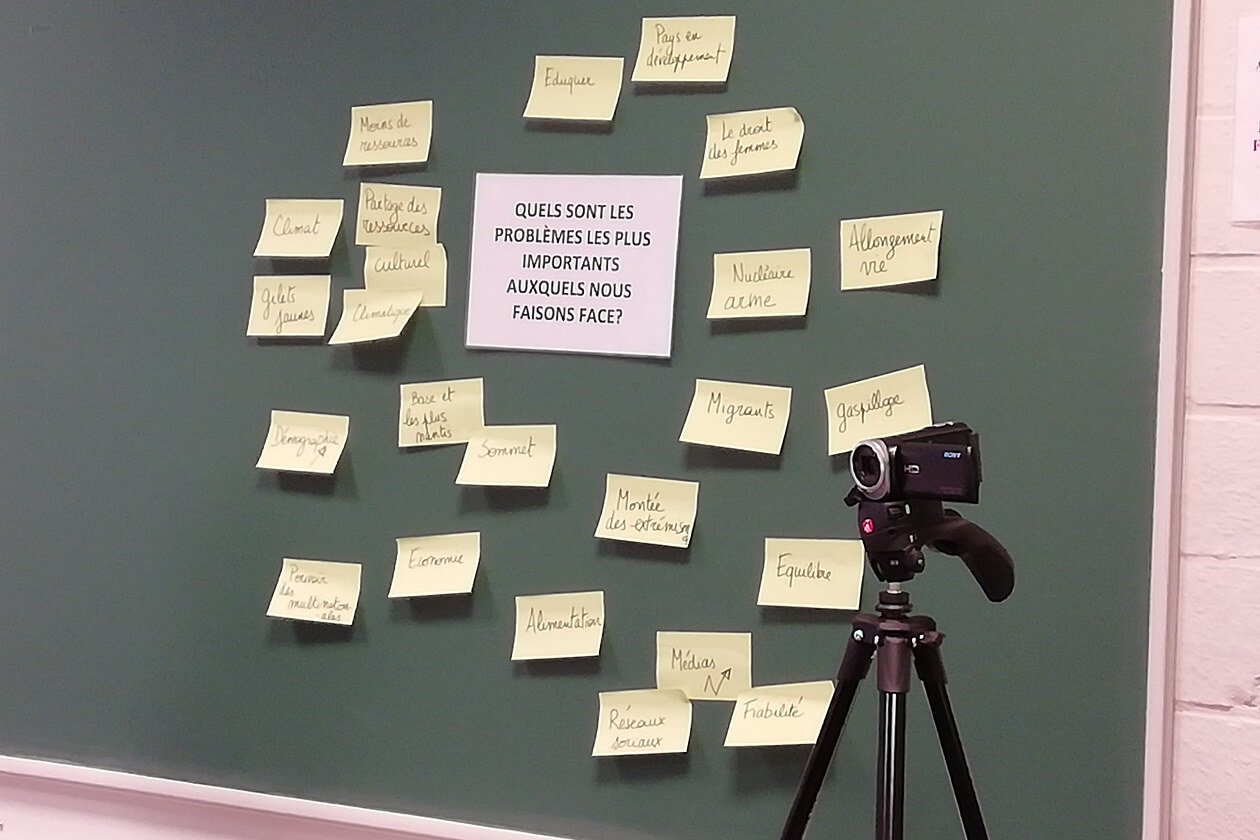 Pays en
développement
Eduquer
Moins de
ressources
Le droit
des femmes
Partage des
ressources
Climat
culturel
Gilets
jaunes
Climatique
QUELS SONT LES
PROBLÈMES LES PLUS
IMPORTANTS
AUXQUELS NOUS
FAISONS FACE?
Allongement
vie
Nucléaire
arme
Base et
les plus
nantis
Sommet
Démographie
Migrants
gaspillage
SONY
Montée
des extrêmes
Economie
Equilibre
Pouvoir
des
multination
ales
Alimentation
Médias
Réseaux
sociaux
Fiabilité